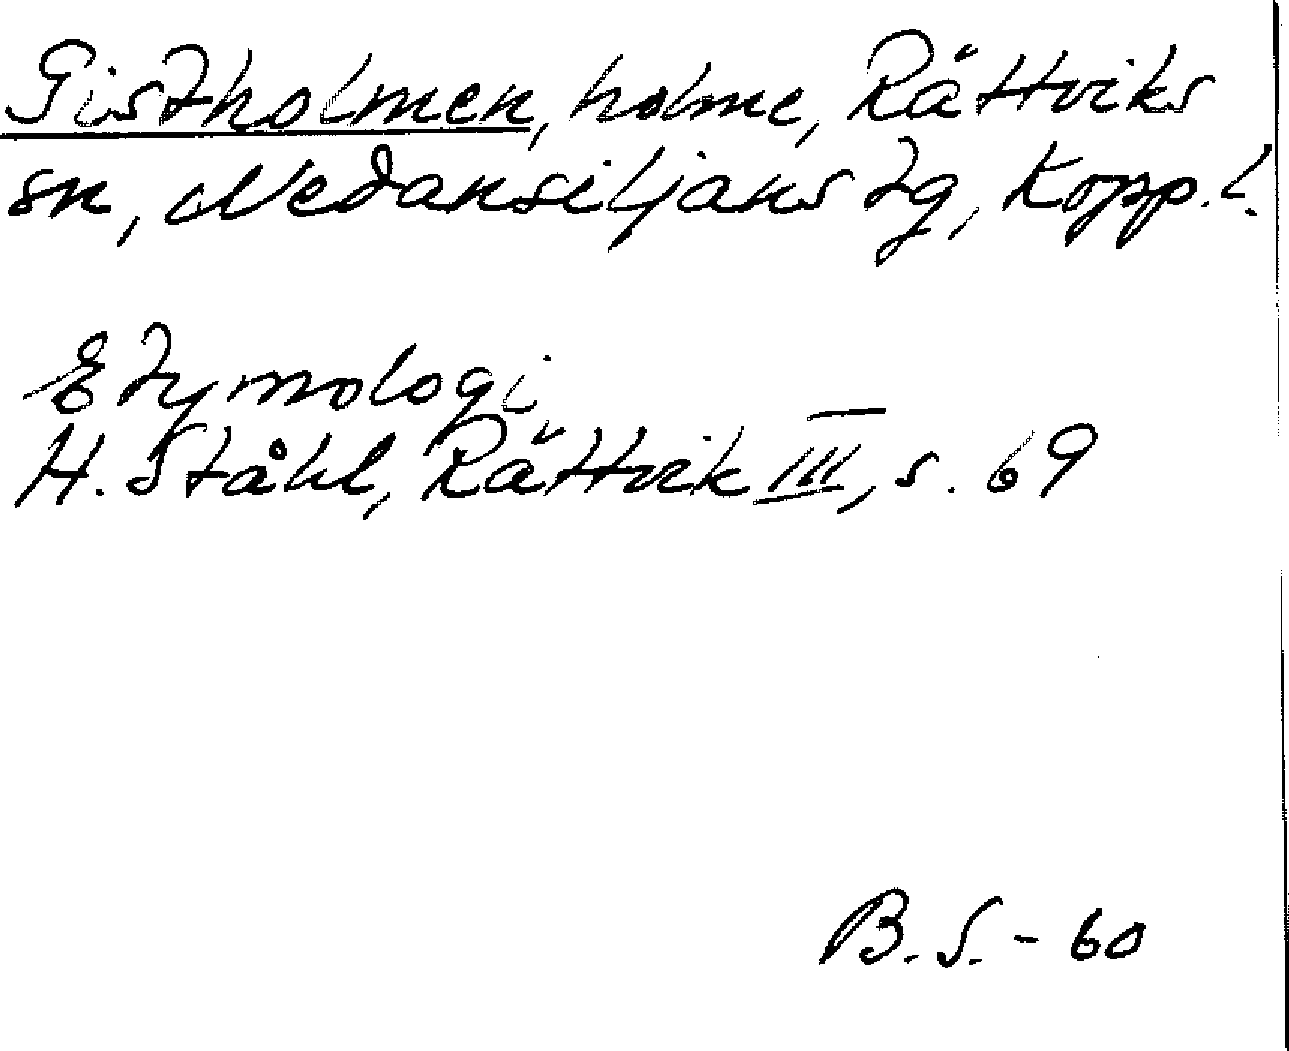 Gistholmen, holme, Rättviks
sn, Nedansiljans tg, Kopp. l.
Etymologi
H. Ståhl, Rättvik III, s. 69
B.S. - 60